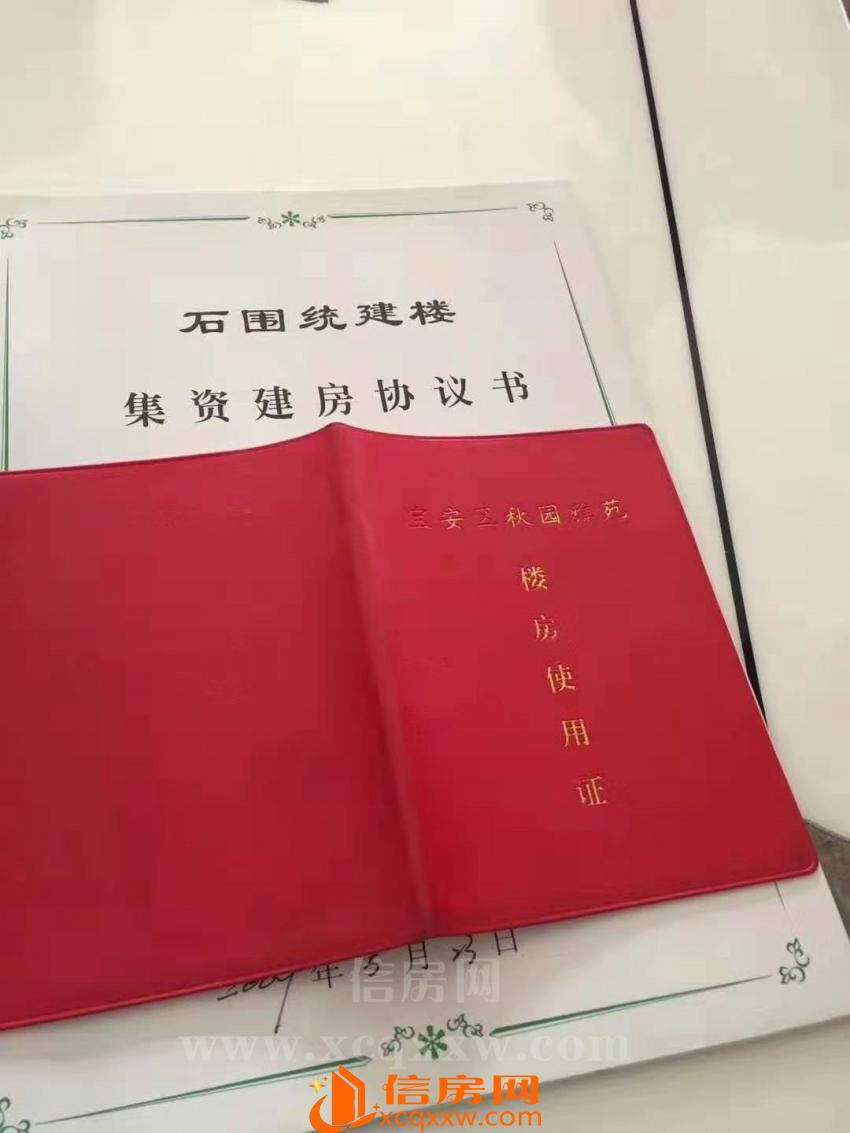 石围统建楼
集资建房协议书
宝安区秋园雅苑
楼房使用证
2009年5月23日
信房网
www.xcqxxw.com
信房网
xcqxxw.com